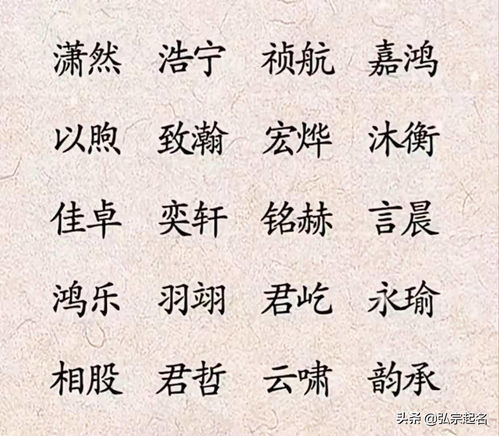 潇然 浩宁 祯航 嘉鸿
以煦 致瀚 宏烨 沐衡
佳卓 奕轩 铭赫 言晨
鸿乐 羽翊 君屹 永瑜
相股 君哲 云啸 韵承
头条 @弘宗起名